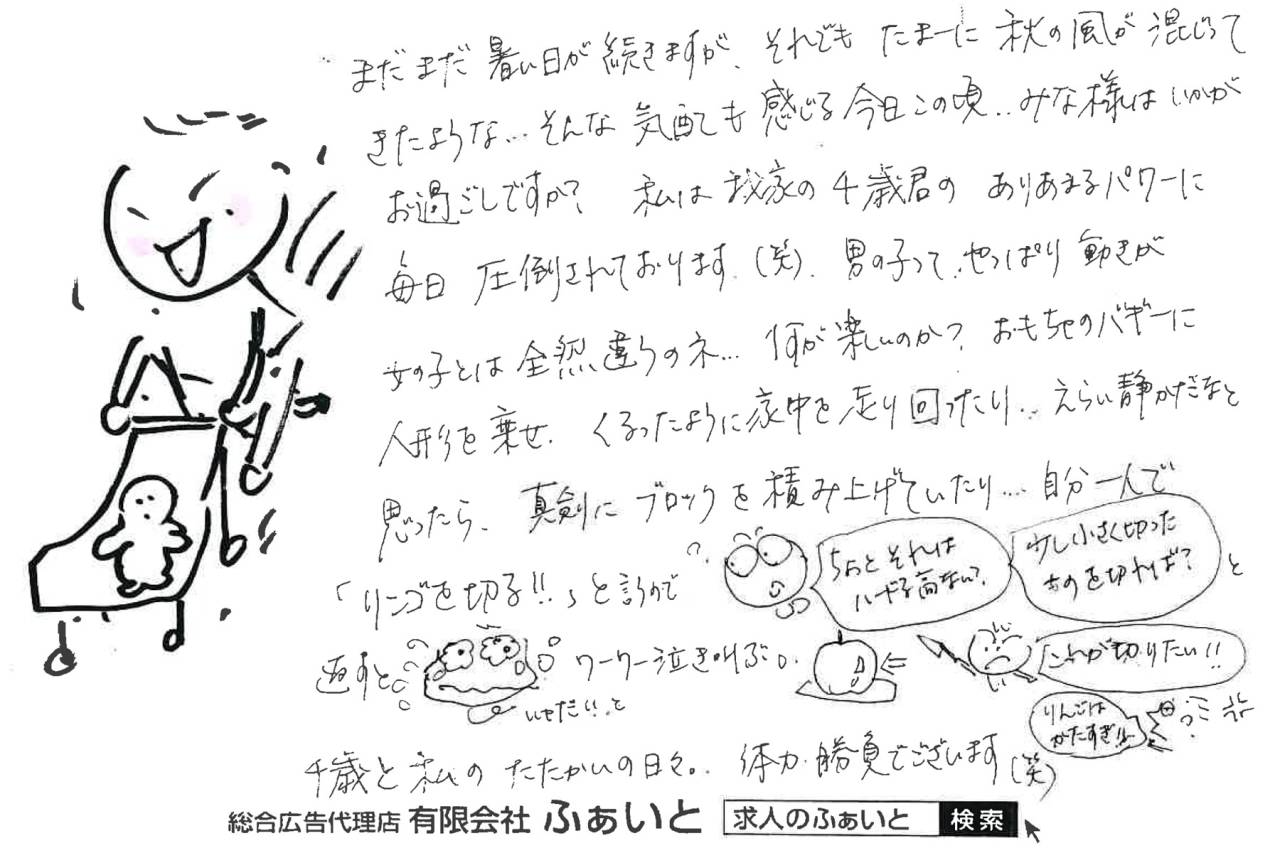 まだまだ暑い日が続きますが、それでも たまーに 秋の風が混じって
きたような…そんな気配も感じる今日この頃…みな様はいかが
お過ごしですか? 私は我家の4歳君の ありあまるパワーに
毎日 圧倒されております。(笑)、男の子って、やっぱり動きが
女の子とは全然違うのネ… 何が楽しいのか? おもちゃのバギーに
人形を乗せ、くるったように家中を走り回ったり… えらい静かだなと
思ったら、真剣にブロックを積み上げていたり…. 自分一人で
「リンゴを切る!!」と言うので
ちょとそれは
ハードル高ない?
少し小さく切った
ものを切れば?
と
返すと
いやだ!!と
ワーワー泣き叫ぶ。
これが切りたい!!
りんごは
かたすぎ!!
4歳と私のたたかいの日々。。体力勝負でございます(笑)
総合広告代理店 有限会社 ふぁいと 求人のふぁいと 検索